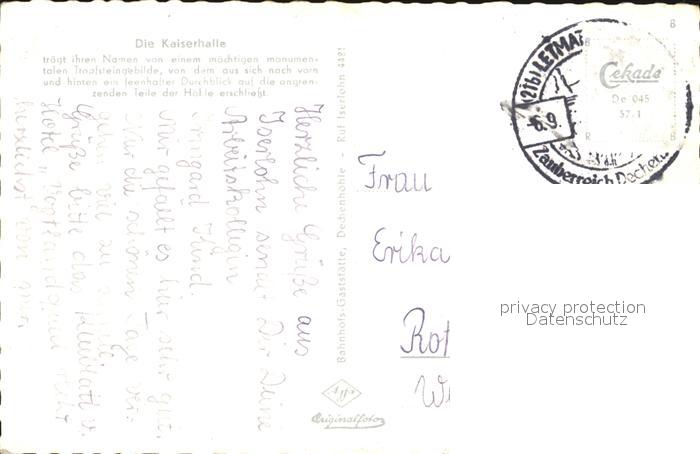 Die Kaiserhalle
trägt ihren Namen von einem mächtigen monumen-
talen Tropfsteingebilde, von dem aus sich nach vorn
und hinten ein feenhafter Durchblick auf die angren-
zenden Teile der Höhle erschließt.
Herzliche Grüße aus
Iserlohn sendet Dir Deine
Arbeitskollegin
Irmgard
Mir gefällt es hier sehr gut.
Nur die schönen Tage ver-
gehen viel zu schnell
Grüße bitte das
Hotel "Vogtland
herzlichst von mir
Bahnhofs-Gaststätte, Dechenhöhle - Ruf Iserlohn 4421
Agfa
Originalfoto
(21b) LETMAT
-6.9.
Zauberreich Dechen
B
B
Cekade
De 045
57.1
R
Frau
Erika
Rot
W
privacy protection
Datenschutz